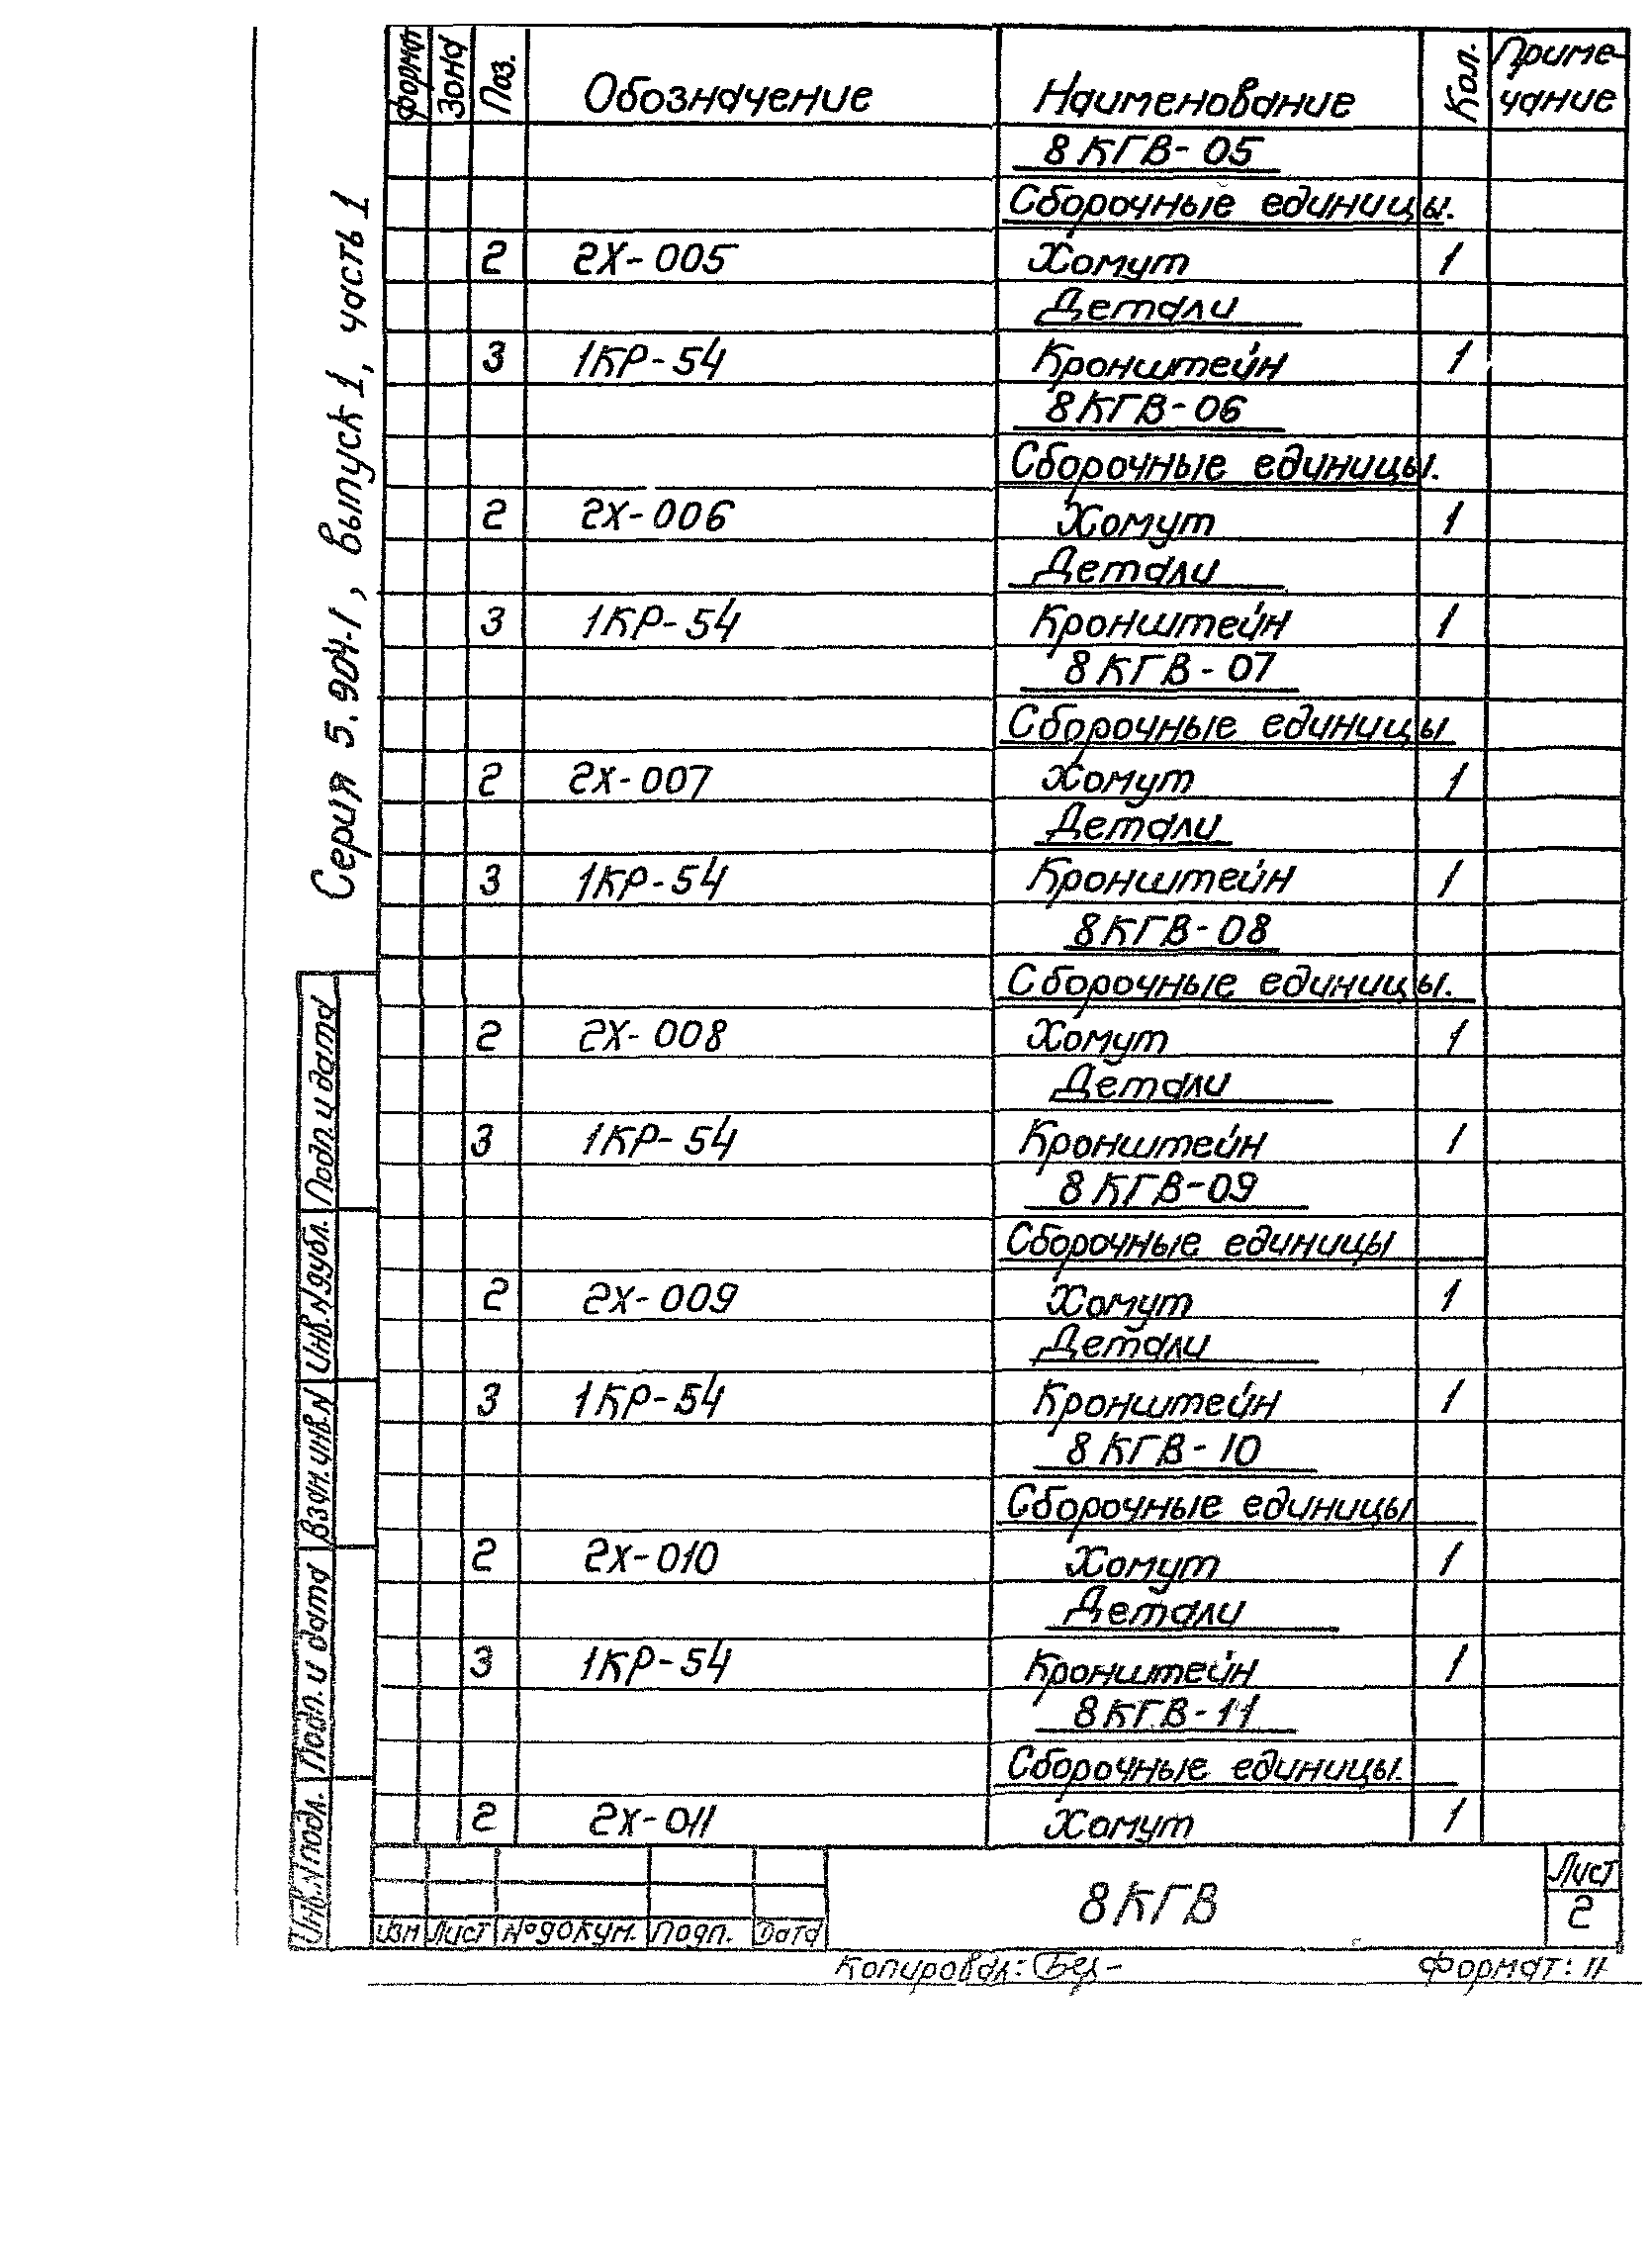 Серия 5.904-1, выпуск 1, часть 1
Формат Зона Поз. Обозначение Наименование Кол. Приме-
чание
8КГВ-05
Сборочные единицы.
2 2Х-005 Хомут 1
Детали
3 1КР-54 Кронштейн 1
8КГВ-06
Сборочные единицы.
2 2Х-006 Хомут 1
Детали
3 1КР-54 Кронштейн 1
8КГВ-07
Сборочные единицы
2 2Х-007 Хомут 1
Детали
3 1КР-54 Кронштейн 1
8КГВ-08
Сборочные единицы.
2 2Х-008 Хомут 1
Детали
3 1КР-54 Кронштейн 1
8КГВ-09
Сборочные единицы
2 2Х-009 Хомут 1
Детали
3 1КР-54 Кронштейн 1
8КГВ-10
Сборочные единицы
2 2Х-010 Хомут 1
Детали
3 1КР-54 Кронштейн 1
8КГВ-11
Сборочные единицы.
2 2Х-011 Хомут 1
Подп. и дата
Инв. N дубл.
Взам. инв. N
Подп. и дата
Инв. N подл.
Изм Лист № докум. Подп. Дата
8КГВ
Лист
2
Копировал: Формат: 11